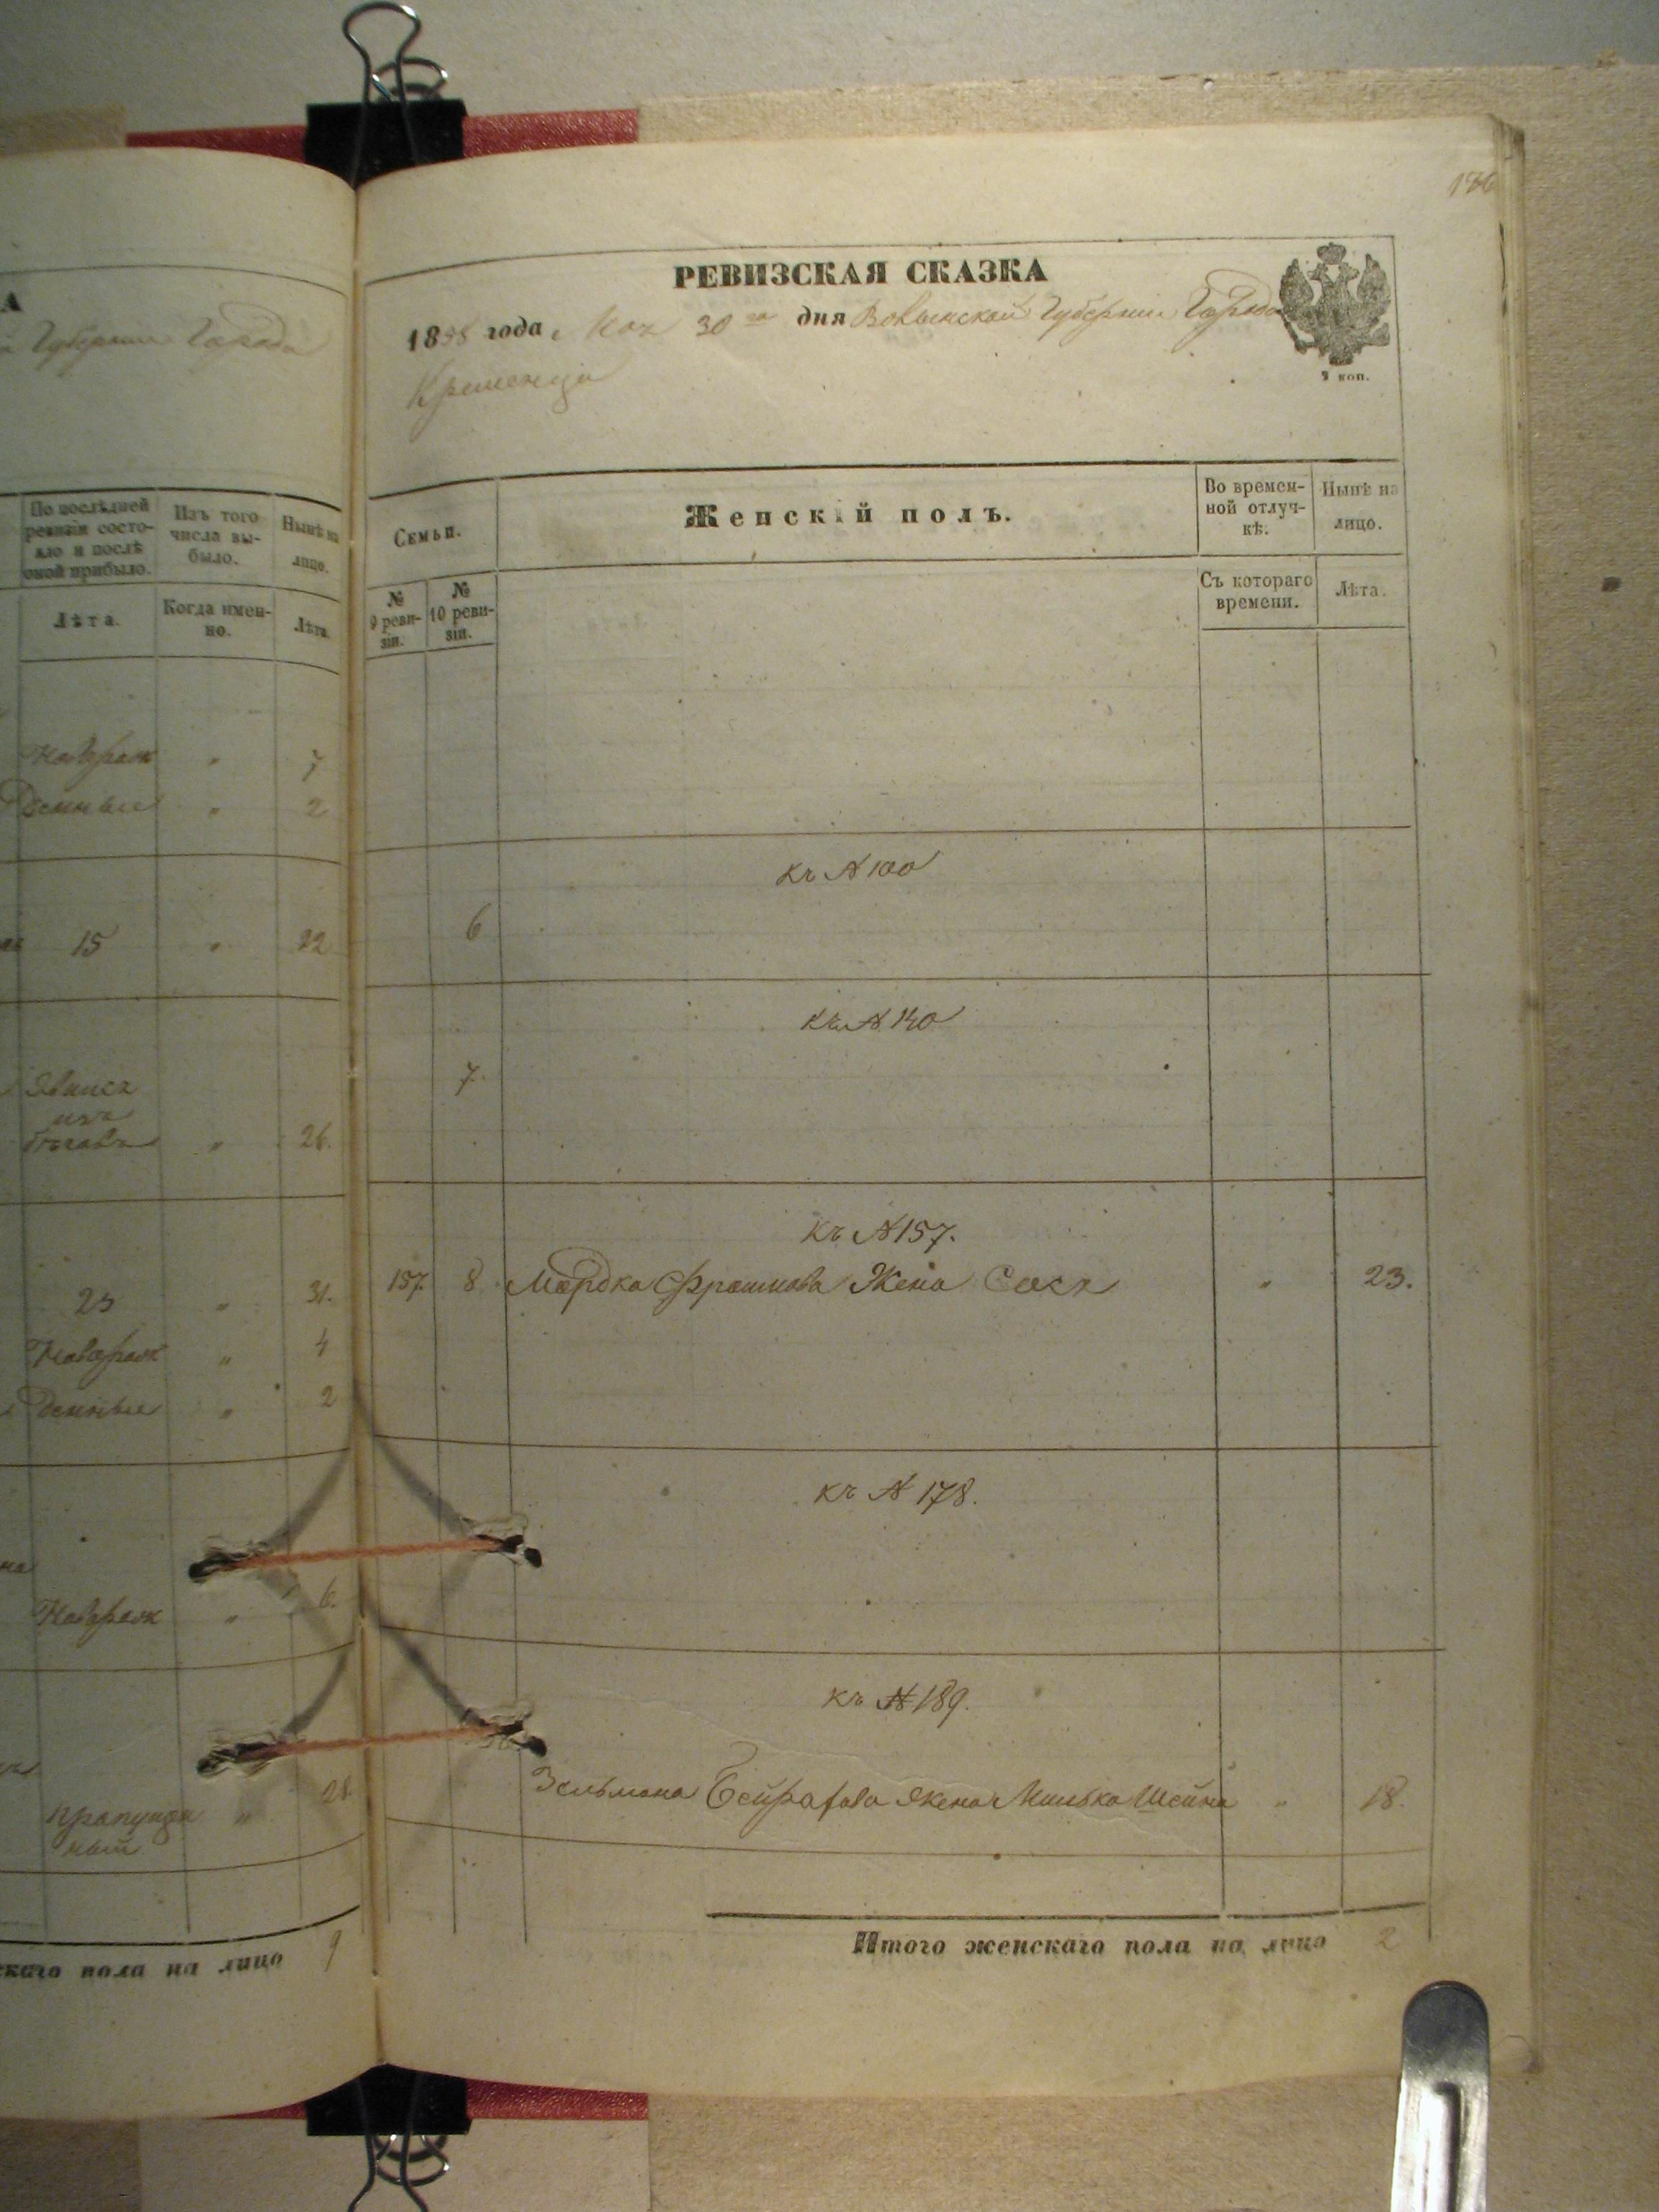 А
Губернии Города
По последней ревизіи состо-
яло и послѣ
оной прибыло.
Изъ того
числа вы-
было.
Нынѣ на
лицо.
Лѣта.
Когда имен-
но.
Лѣта.
Новорож " 7
денные " 2
15 " 22
Явился
изъ
бѣговъ " 26.
25 " 31.
Новорож " 4
денные " 2
на
Новорож " 6.
пропущен
ный " 28
скаго пола на лицо 9
176
РЕВИЗСКАЯ СКАЗКА
1858 года, Мая 30го дня Волынской Губернии Города
Кременца
2 коп.
Семьи.
Женскій полъ.
Во времен-
ной отлуч-
кѣ.
Нынѣ на
лицо.
№
9 реви-
зіи.
№
10 реви-
зіи.
Съ котораго
времени.
Лѣта.
къ № 100
6
къ № 140
7.
къ № 157.
157. 8 Мордка Фроимова Жена Сося " 23.
къ № 178.
къ № 189.
Зельмана жена Шейна " 18.
Итого женскаго пола на лицо 2